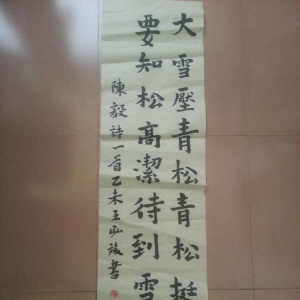 大雪壓青松青松挺
要知松高潔待到雪
陳毅詩一首乙未王
書